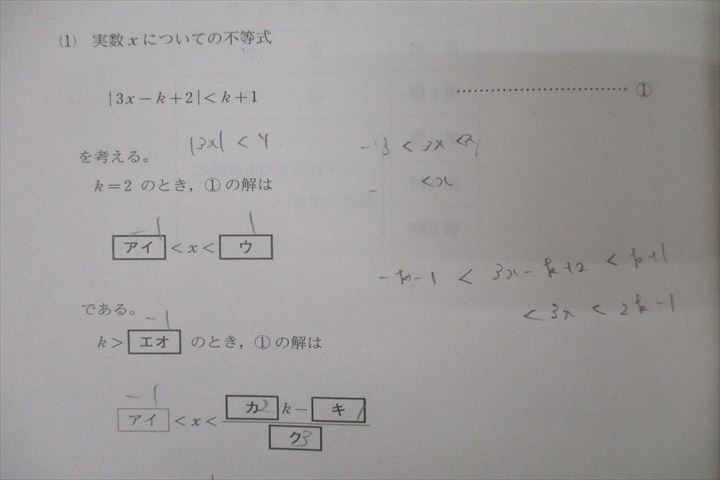 (1) 実数xについての不等式
|3x−k+2|<k+1 ………………………… ①
を考える。 |3x| <
k=2 のとき，①の解は
− <x
−1 1
アイ <x< ウ
−k−1 < 3x−k+2 < k+1
である。 < 3x < 2k−1
−1
k> エオ のとき，①の解は
−1 2 1
アイ <x< カ k− キ
ク 3